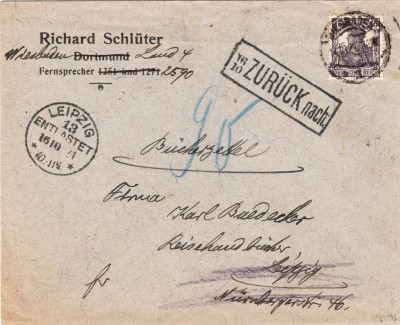 Richard Schlüter
Wiesbaden Dortmund Land 4
Fernsprecher 1251 und 1271 2590
16/10 ZURÜCK nach
LEIPZIG
13
ENTLASTET
16 10 21
95
Bücherzettel
Firma
Karl Baedecker
Reisehandbücher
Leipzig
fr Nürnbergerstr. 46.